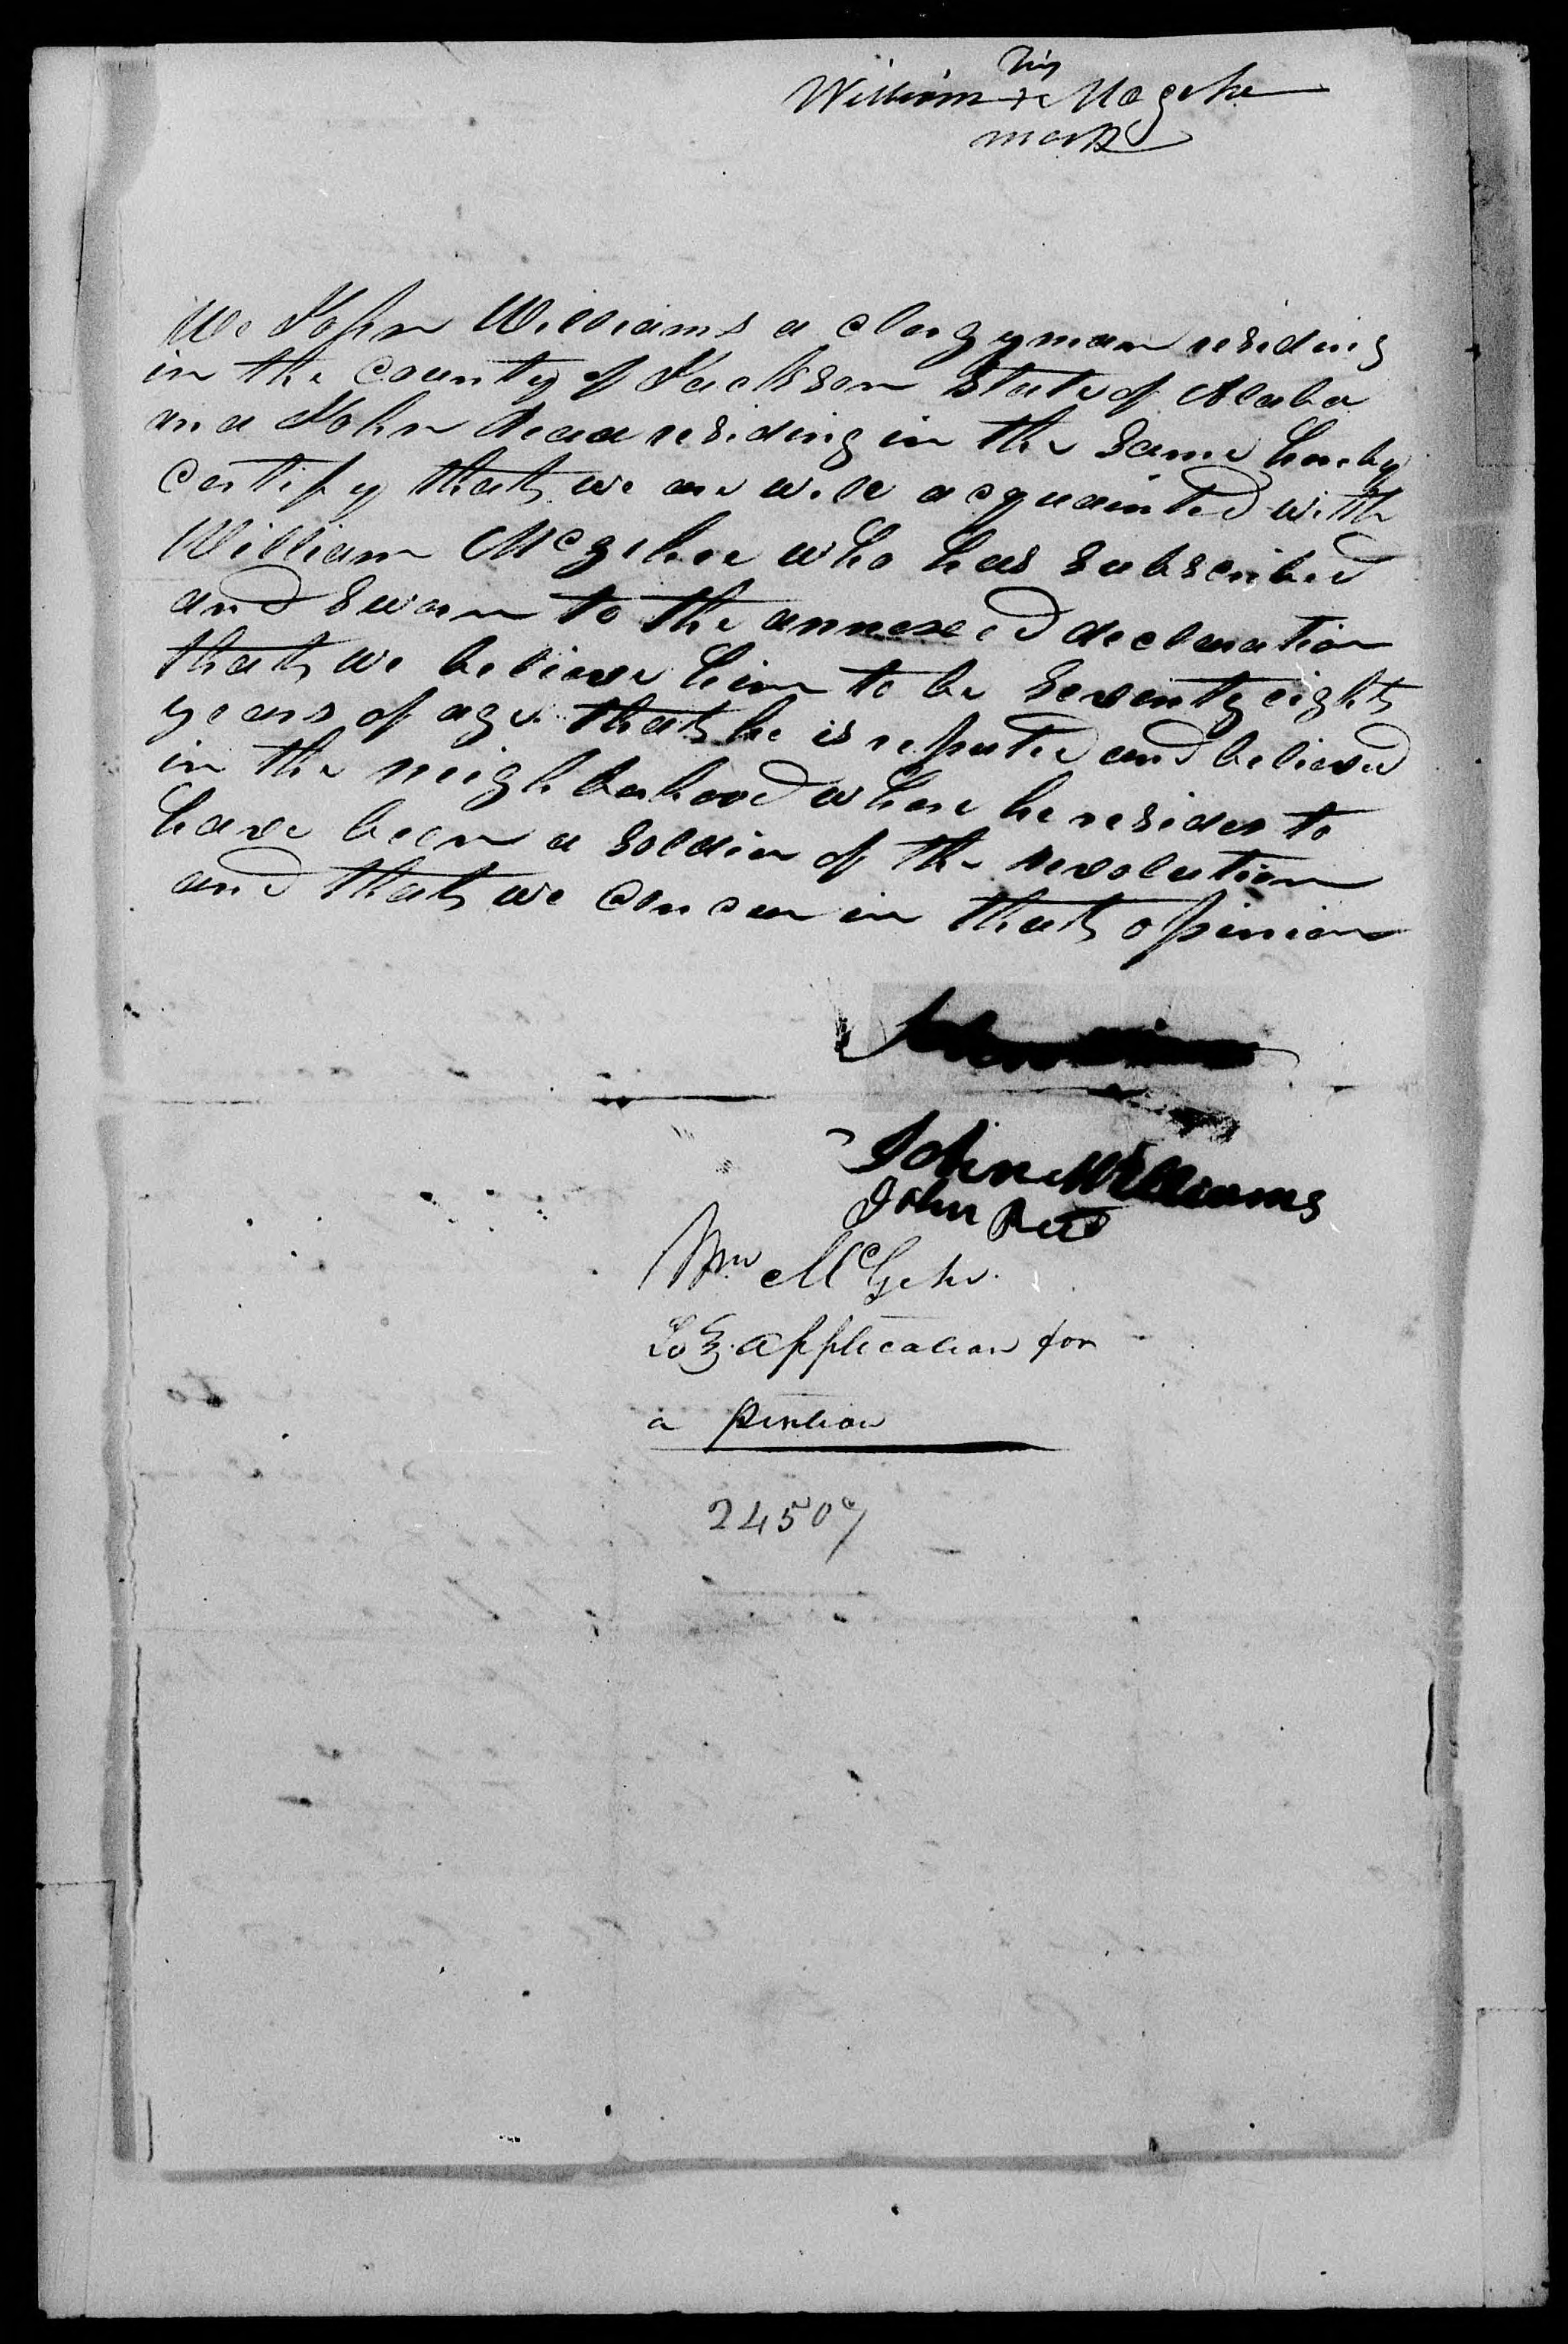 his
William x Mcgehe
mark
We John Williams a clergyman residing
in the county of Jackson State of Alaba
ma John Read residing in the same hereby
certify that we are well acquainted with
William Mcgehee who has subscribed
and sworn to the annexed declaration
that we believe him to be seventy eight
years of age that he is reputed and believed
in the neighborhood where he resides to
have been a soldier of the revolution
and that we concur in that opinion
John Williams
John Reed
Wm McGehe
application for
a pention
24507